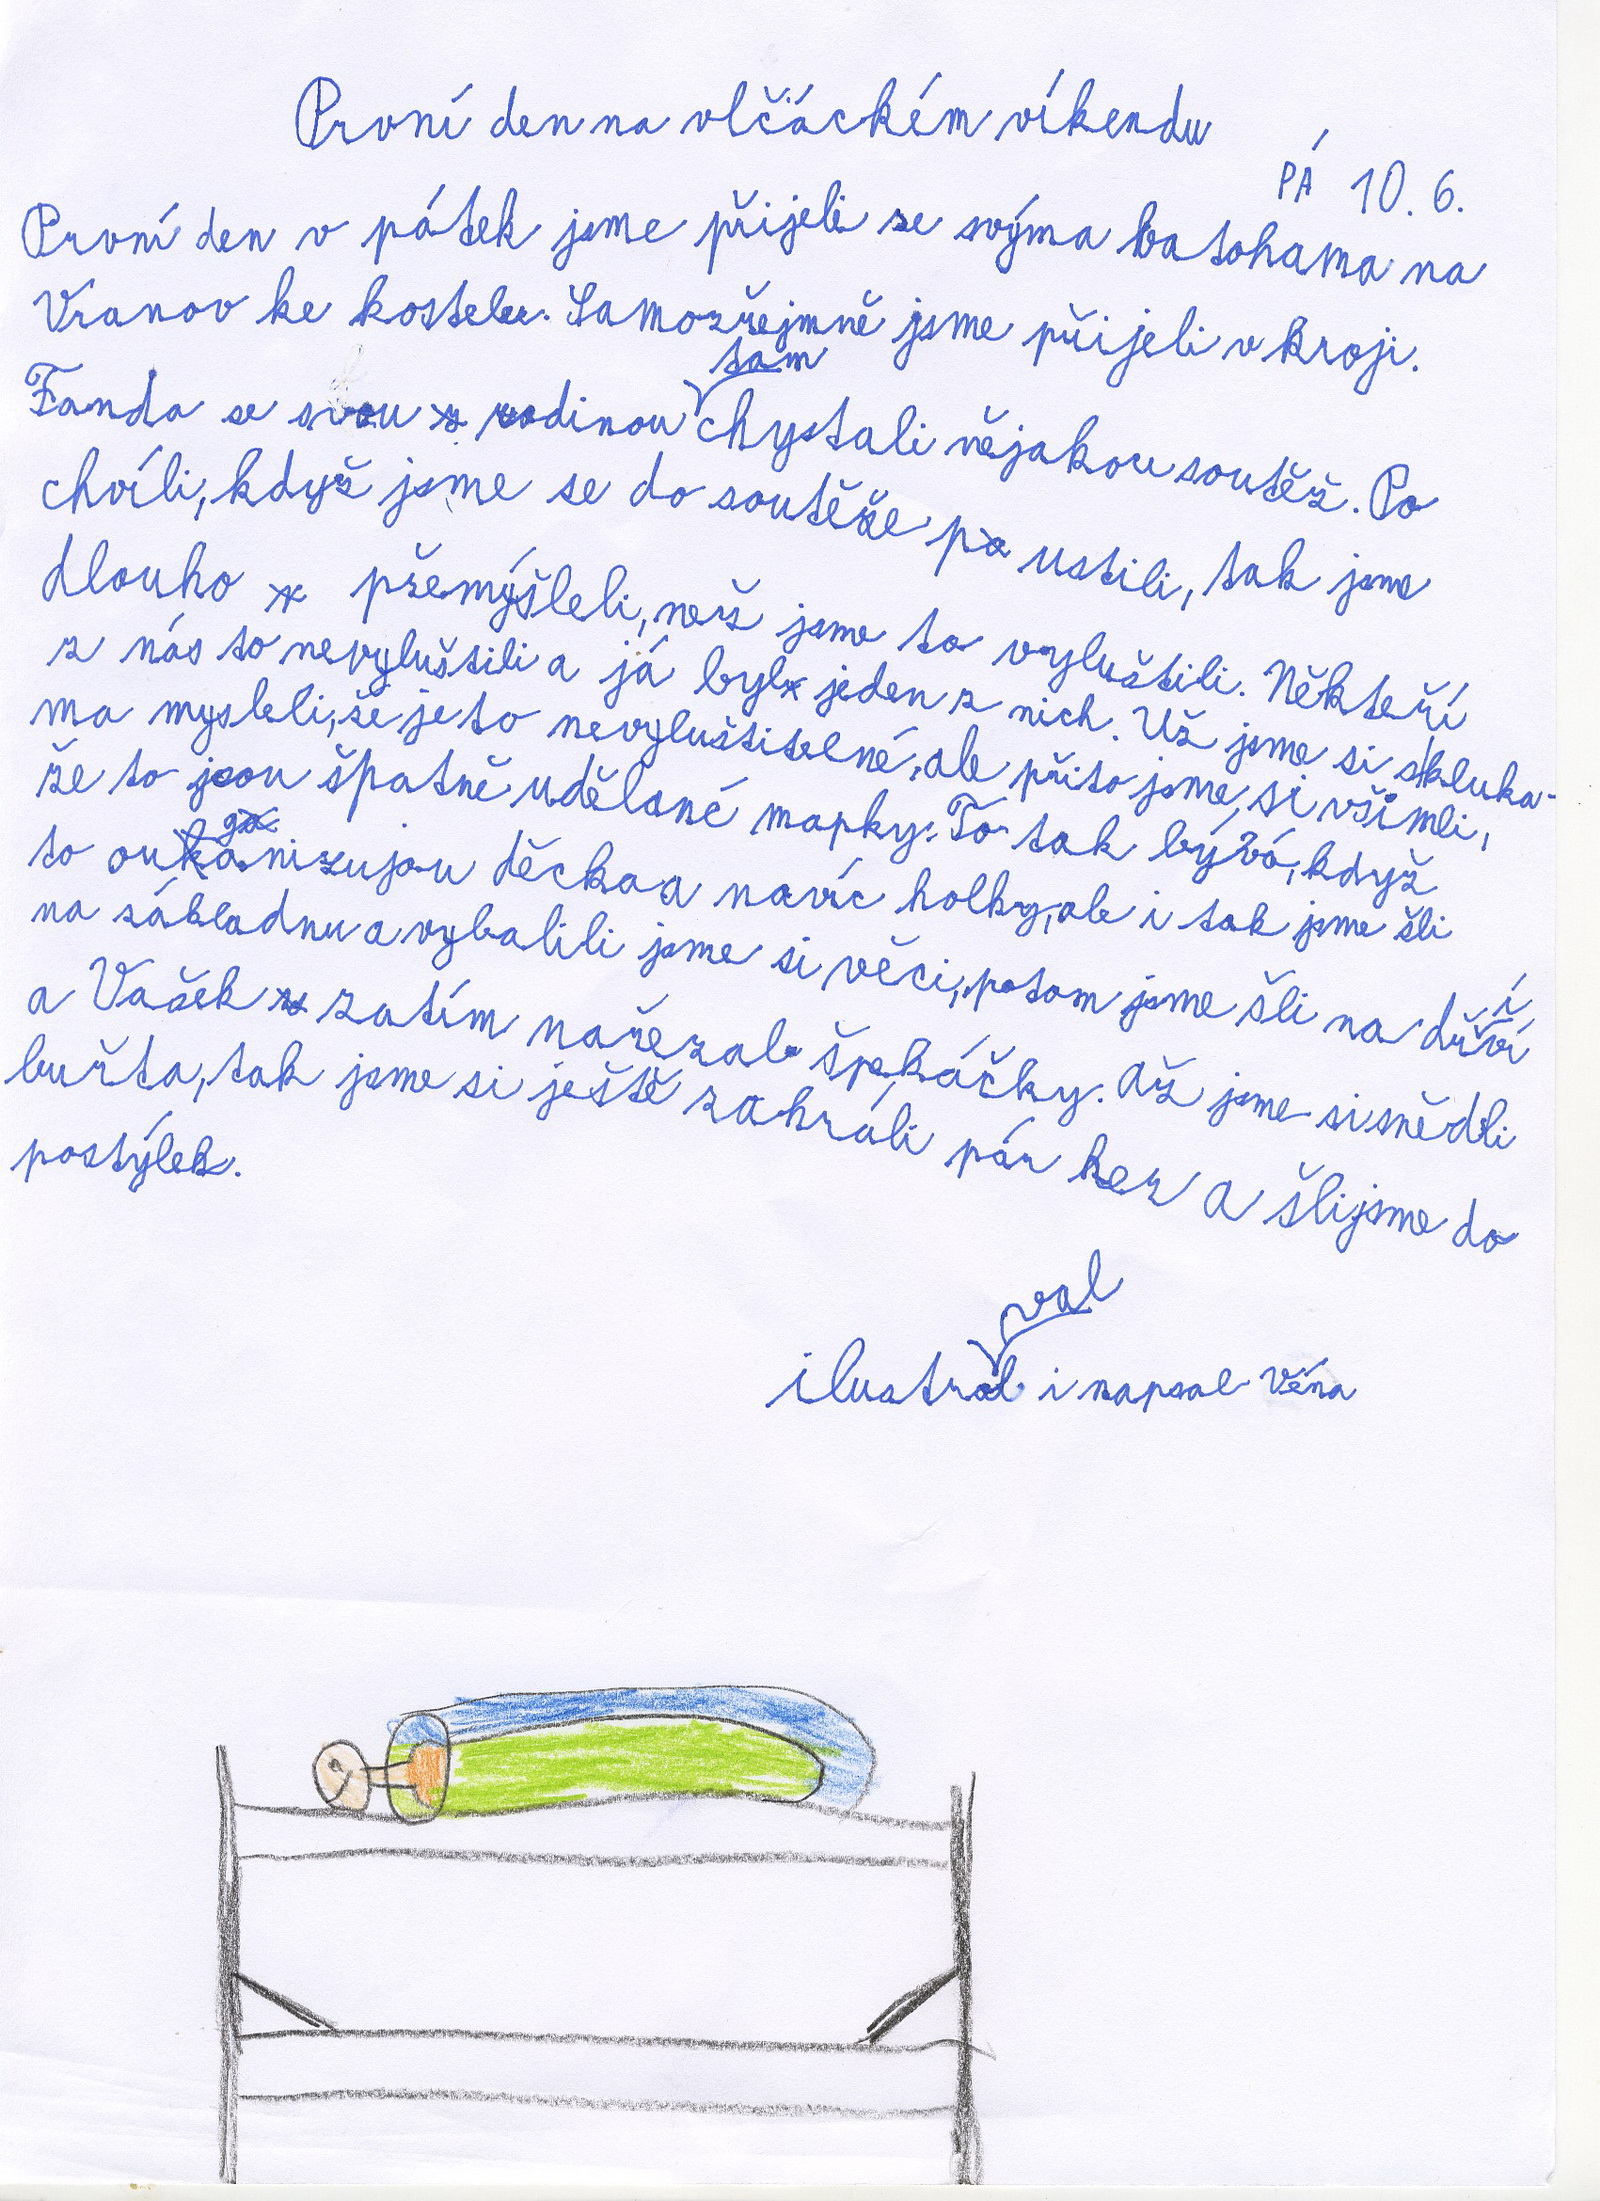 První den na vlčáckém víkendu
PÁ 10. 6.
První den v pátek jsme přijeli se svýma batohama na
Vranov ke kostelu. Samozřejmně jsme přijeli v kroji.
Fanda se svou rodinou tam chystali nějakou soutěž. Po
chvíli, když jsme se do soutěže pustili, tak jsme
dlouho přemýšleli, než jsme to vyluštili. Někteří
z nás to nevyluštili a já byl jeden z nich. Už jsme si s kluka-
ma mysleli, že je to nevyluštitelné, ale přito jsme, si všimli,
že to jsou špatně udělané mapky. To tak bývá, když
to organizujou děcka a navíc holky, ale i tak jsme šli
na základnu a vybalili jsme si věci, potom jsme šli na dříví
a Vašek zatím nařezal špekáčky. Až jsme si snědli
buřta, tak jsme si ještě zahráli pár her a šli jsme do
postýlek.
ilustroval i napsal Véna